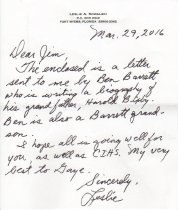 Mar. 29, 2016
Dear Jim,
The enclosed is a letter
sent to me by Ben Barrett
who is writing a biography of
his grandfather, Harold
Ben is also a Barrett grand-
son.
I hope all is going well for
you, as well as CIHS. My very
best to Gaye.
Sincerely,
Leslie